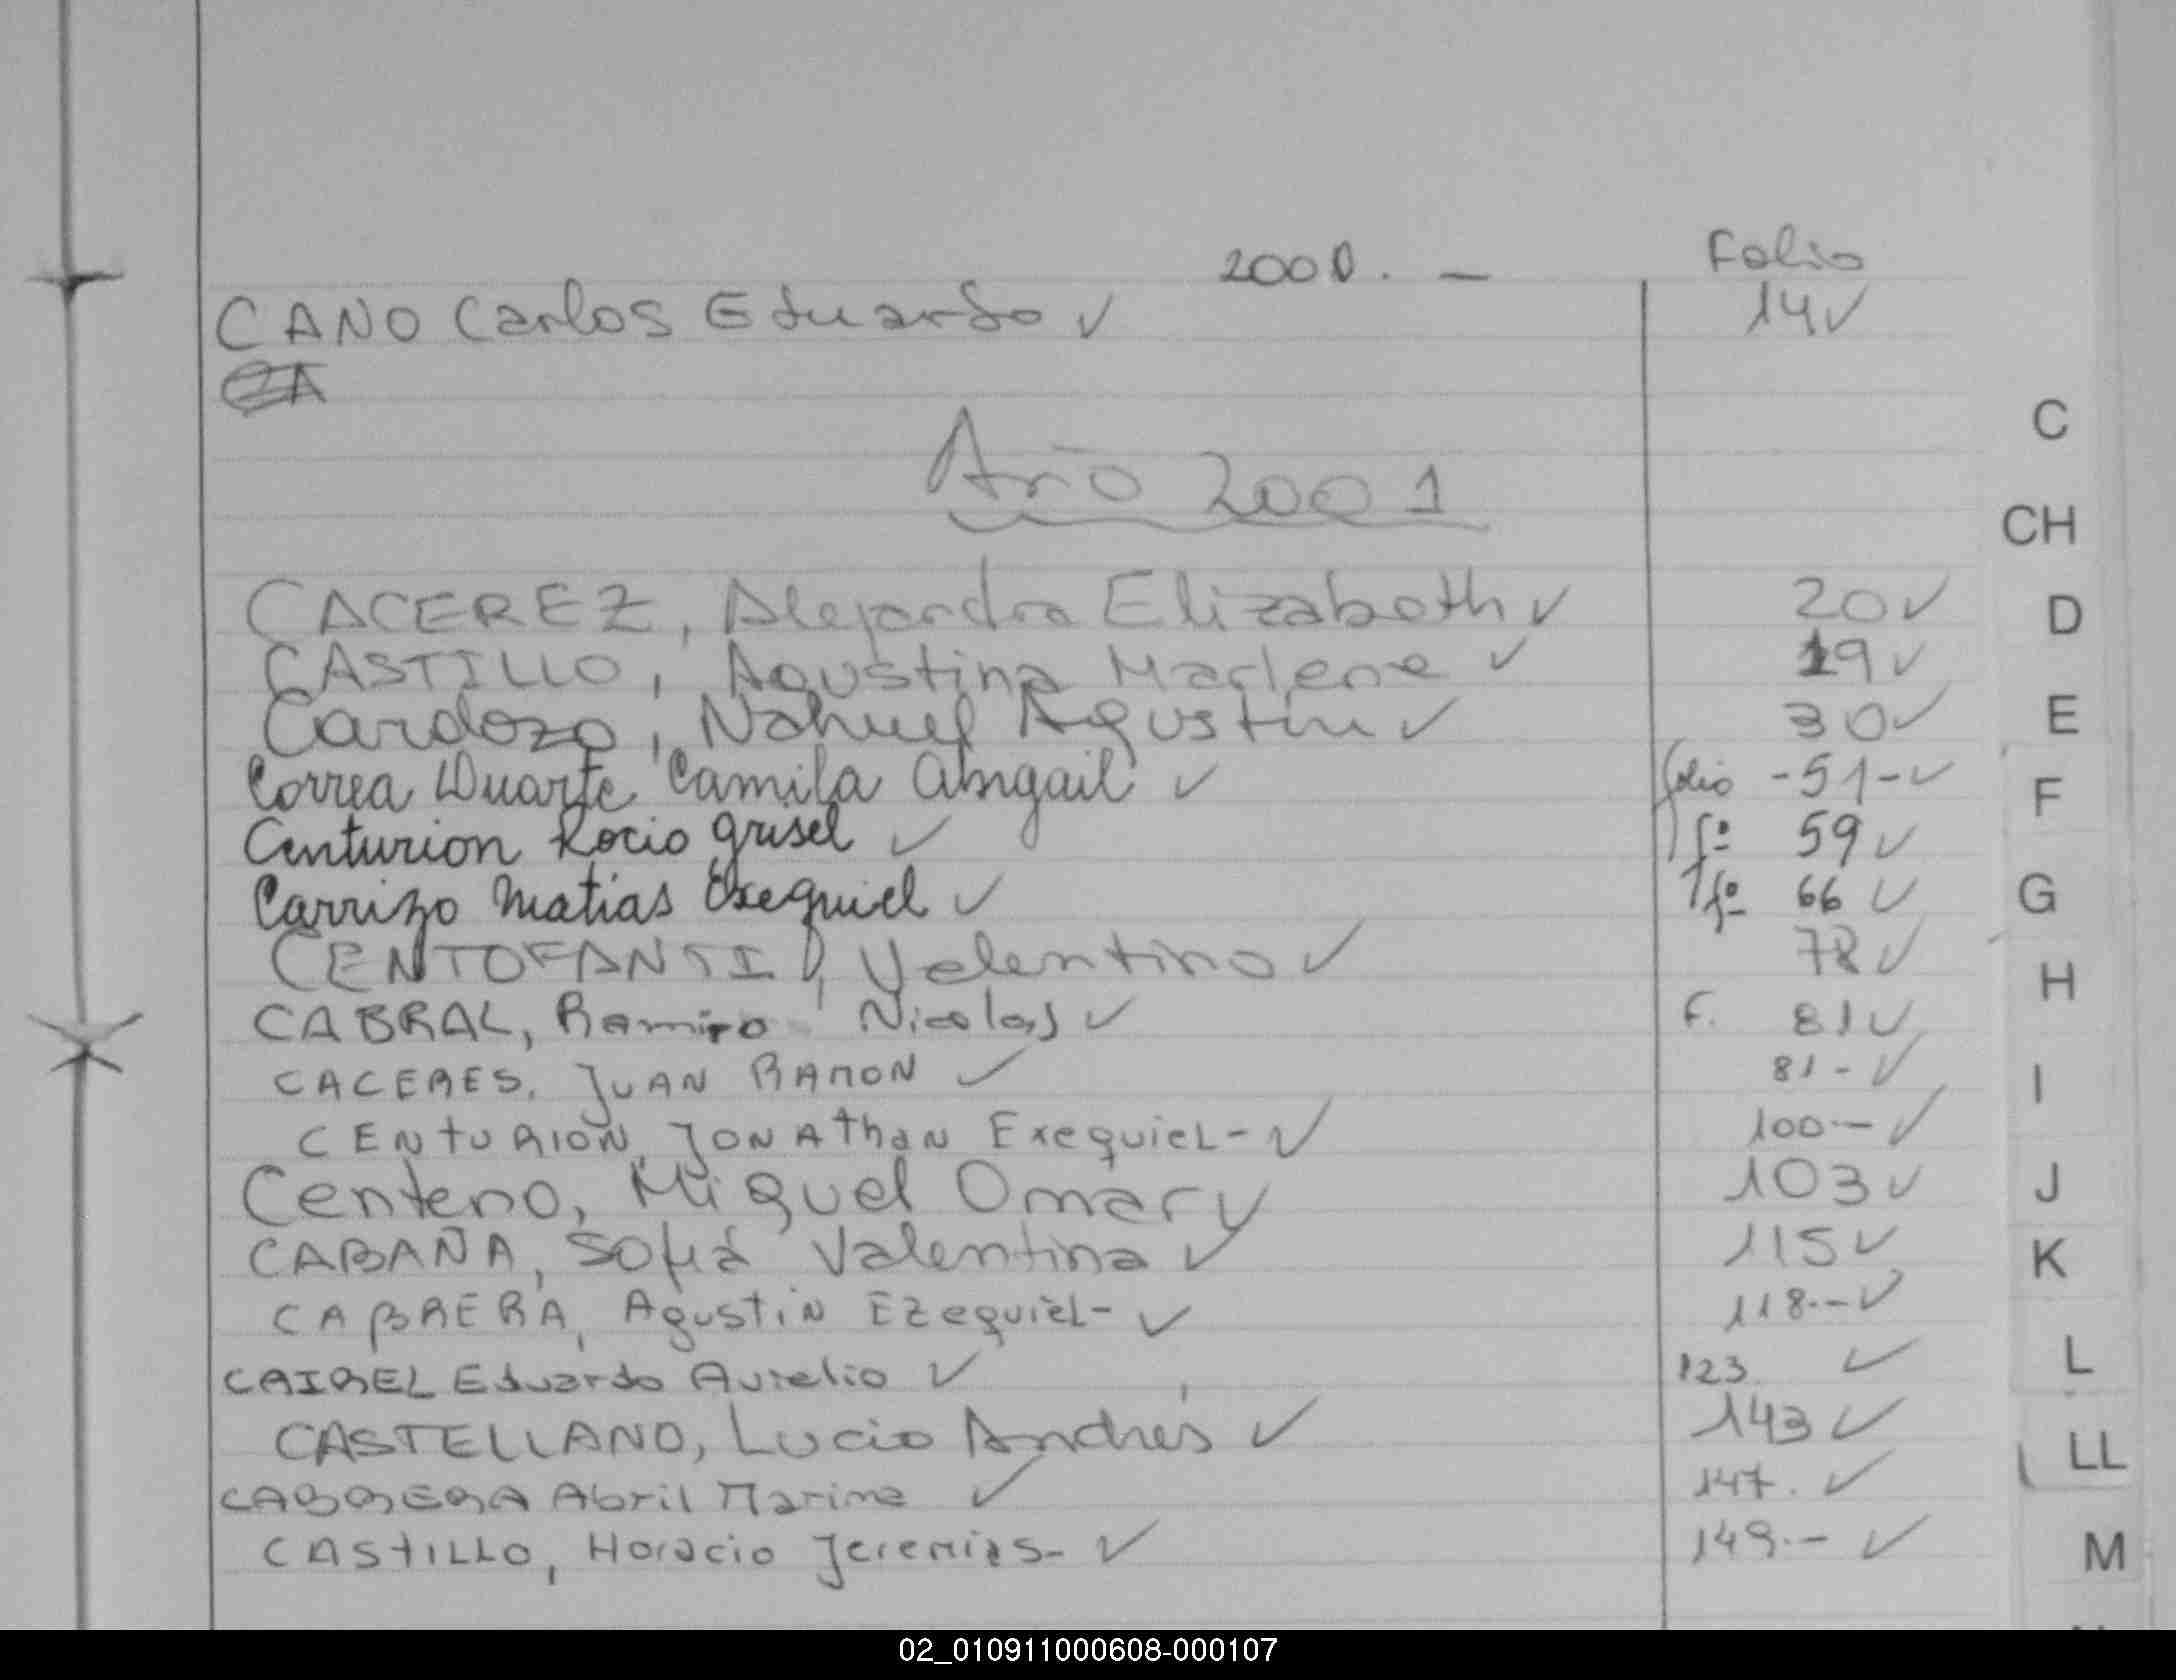 2000. — Folio
CANO Carlos Eduardo ✓ 14 ✓
CA
Año 2001
CACEREZ, Alejandra Elizabeth ✓ 20 ✓
CASTILLO, Agustina Marlene ✓ 19 ✓
Cardozo, Nahuel Agustin ✓ 30 ✓
Correa Duarte Camila Abigail ✓ folio -51- ✓
Centurion Rocio Grisel ✓ fº 59 ✓
Carrizo Matias Exequiel ✓ fº 66 ✓
CENTOFANTI, Valentino ✓ 78 ✓
CABRAL, Ramiro Nicolas ✓ F. 81 ✓
CACERES, JUAN RAMON ✓ 81- ✓
CENTURION, JONATHAN Exequiel- ✓ 100.- ✓
Centeno, Miguel Omar ✓ 103 ✓
CABAÑA, Sofía Valentina ✓ 115 ✓
CABRERA, Agustin Ezequiel- ✓ 118.- ✓
CAIBEL Eduardo Aurelio ✓ 123 ✓
CASTELLANO, Lucio Andrés ✓ 143 ✓
CABRERA Abril Marina ✓ 147. ✓
CASTILLO, Horacio Jeremias- ✓ 149.- ✓
C
CH
D
E
F
G
H
I
J
K
L
LL
M
02_010911000608-000107